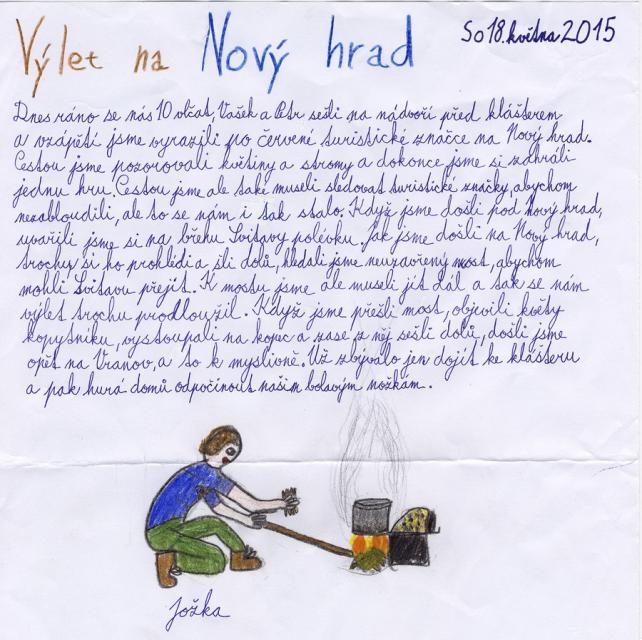 Výlet na Nový hrad
So 18. května 2015
Dnes ráno se nás 10 vlčat, Vašek a Petr sešli na nádvoří před klášterem
a vzápětí jsme vyrazili po červené turistické značce na Nový hrad.
Cestou jsme pozorovali květiny a stromy a dokonce jsme si zahráli
jednu hru. Cestou jsme ale také museli sledovat turistické značky, abychom
nezabloudili, ale to se nám i tak stalo. Když jsme došli pod Nový hrad,
uvařili jsme si na břehu Svitavy polévku. Jak jsme došli na Nový hrad,
trochu si ho prohlédli a šli dolů, hledali jsme neuzavřený most, abychom
mohli Svitavu přejít. K mostu jsme ale museli jít dál a tak se nám
výlet trochu prodloužil. Když jsme přešli most, objevili květy
kopytníku, vystoupali na kopec a zase z něj sešli dolů, došli jsme
opět na Vranov, a to k myslivně. Už zbývalo jen dojít ke klášteru
a pak hurá domů odpočinout našim bolavým nožkám.
Jožka